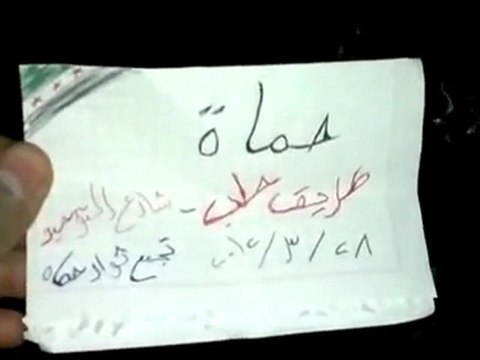 حماة
طريق حلب - شارع التوحيد
٢٠١٢/٣/٢٨ تجمع ثوار حماه